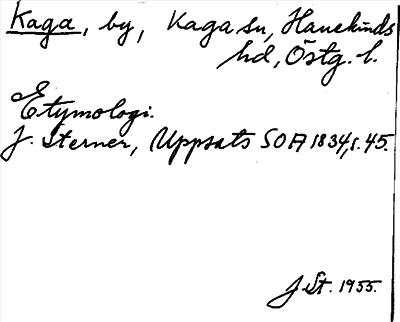 Kaga, by, Kaga sn, Hanekinds
hd, Östg. l.
Etymologi.
J. Sterner, Uppsats SOA 1834, s. 45.
J St. 1955.